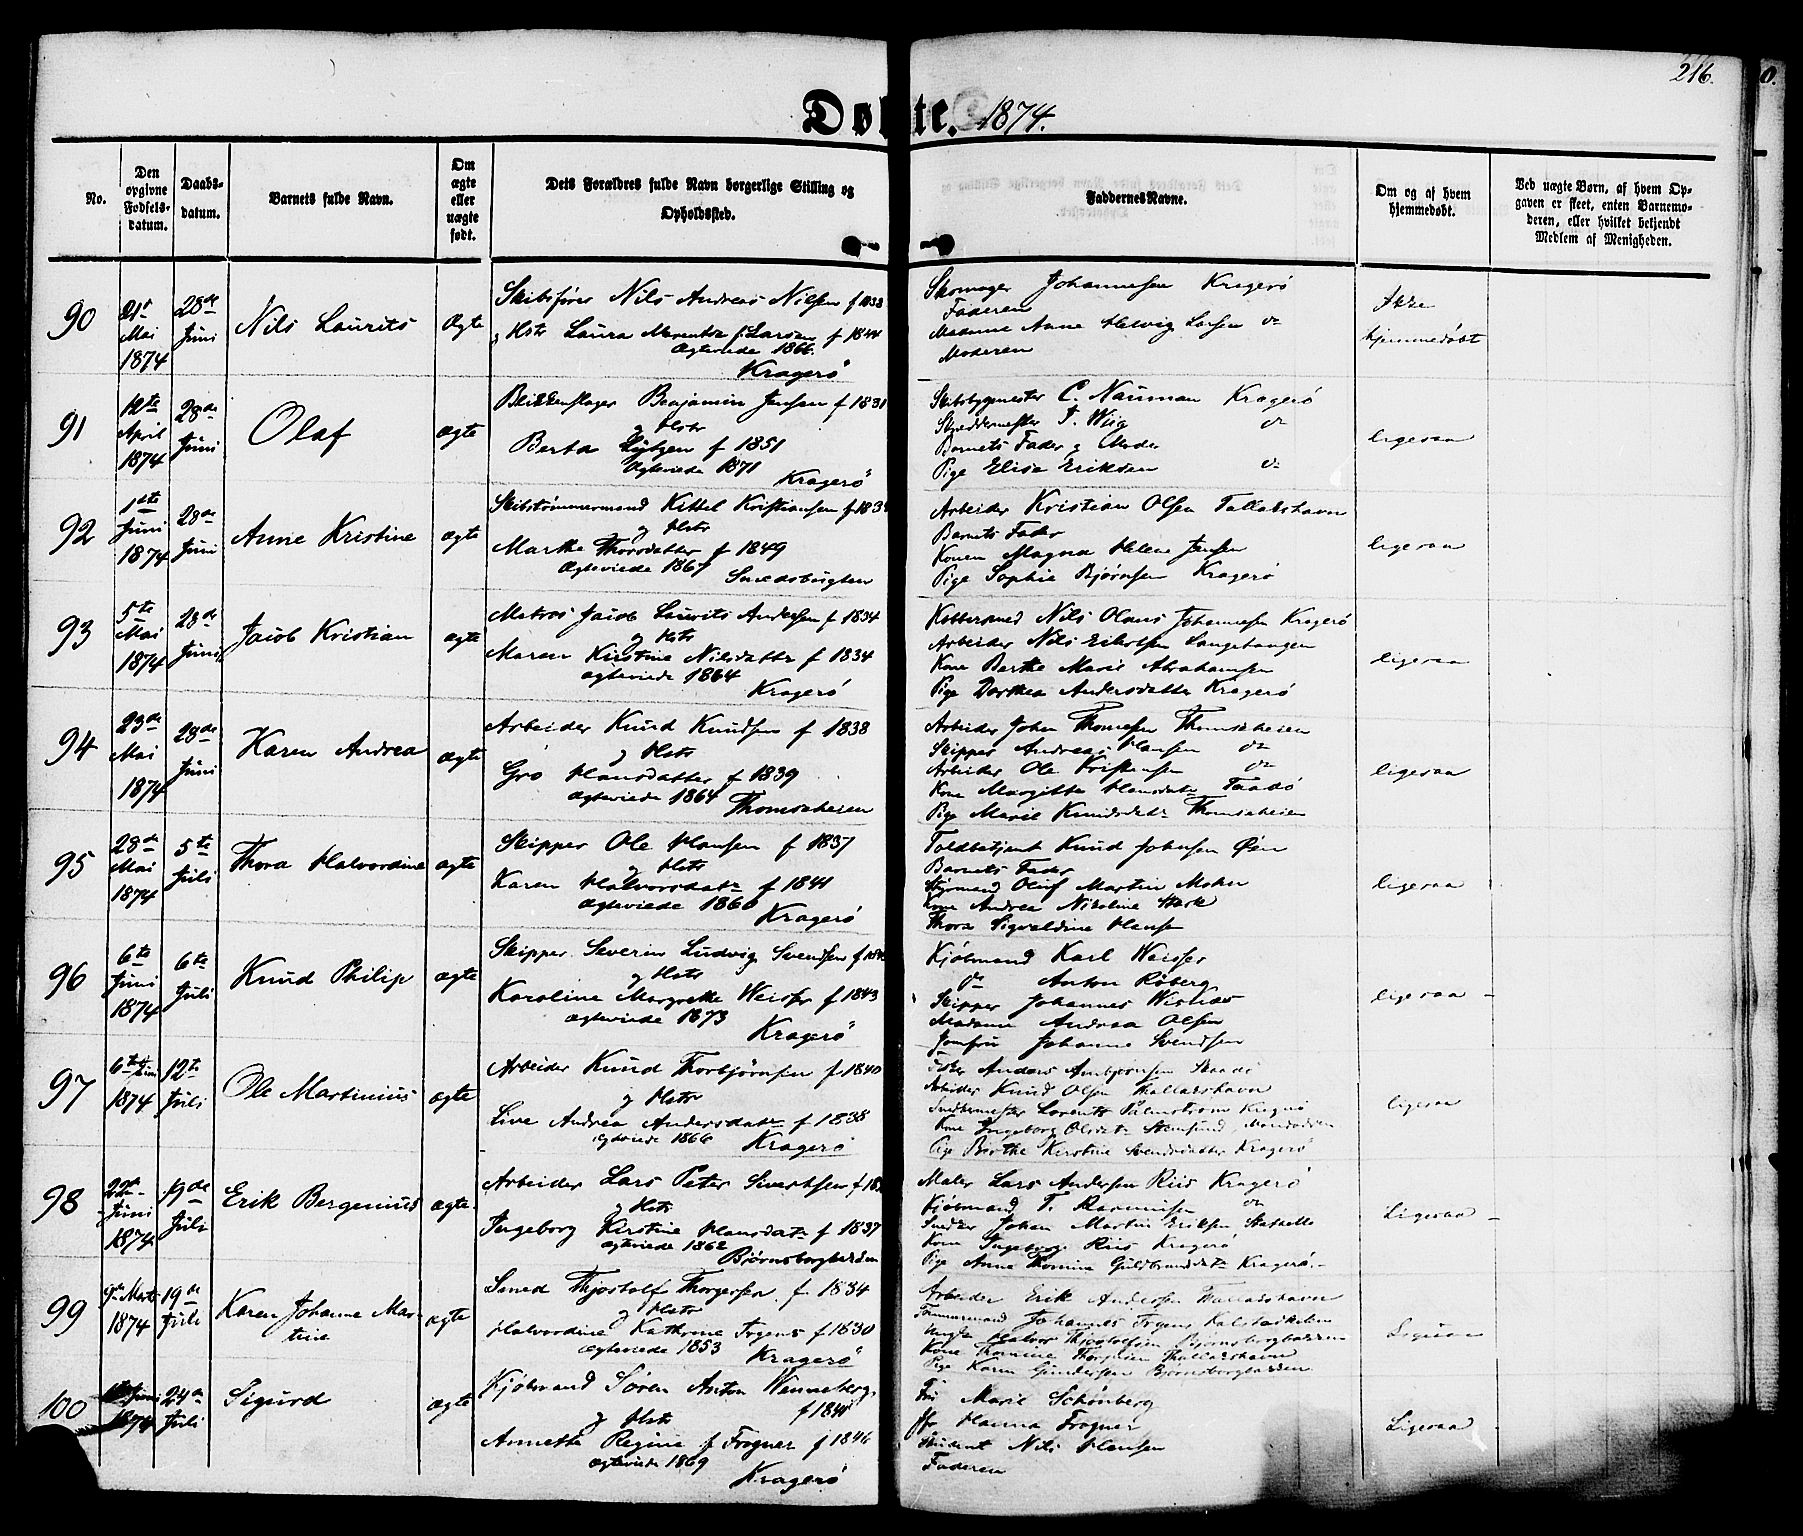 216.
Døbte. 1874.
No.
Den opgivne Fødselsdatum.
Daabsdatum.
Barnets fulde Navn.
Om ægte eller uægte født.
Dets Forældres fulde Navn borgerlige Stilling og Opholdssted.
Faddernes Navne.
Om og af hvem hjemmedøbt.
Ved uægte Børn, af hvem Opgaven er skeet, enten Barnemoderen, eller hvilket bekjendt Medlem af Menigheden.
90
21st Mai 1874
28de Juni
Nils Laurits
Ægte
Skibsfører Nils Andreas Nilsen f 1838
g Hstr Laura f. Larsen f 1844
Ægteviede 1866.
Kragerø
Skomager Johannesen Kragerø
Faderen
Madame Anne Helvig Larsen do
Moderen
Ikke hjemmedøbt
91
12te April 1874
28de Juni
Olaf
ægte
Blikkenslager Benjamin Jensen f 1831
g Hstr
Berta f 1851
Ægteviede 1871
Kragerø
Skibsbygmester C. Nauman Kragerø
Skreddermester J. Wiig do
Barnets Fader g Moder
Pige Elise Eriksen do
ligesaa
92
1ste Juni 1874
28de Juni
Anne Kristine
ægte
Skibstømmermand Kittel Kristiansen
g Hstr
Marthe Thorsdatter f 1849
Ægteviede 1867
Smedsbugten
Arbeider Kristian Olsen Tallakshavn
Barnets Fader
Konen Magna Helene Jensen
Pige Sophie Bjørnsen Kragerø
ligesaa
93
5te Mai 1874
28de Juni
Jacob Kristian
ægte
Matros Jacob Laurits Andersen f 1834
g Hstr
Maren Kirstine Nilsdatter f 1834
ægteviede 1864
Kragerø
Kobbersmed Nils Olaus Johannesen Kragerø
Arbeider Nils Eilertsen Langehaugen
Kone Berthe Marie Abrahamsen
Pige Dorthea Andersdatter Kragerø
ligesaa
94
23de Mai 1874
28de Juni
Karen Andrea
ægte
Arbeider Knud Knudsen f 1838
g Hstr
Gro Hansdatter f 1839
Ægteviede 1864
Thomesheien
Arbeider Johan Thomesen Thomesheien
Skipper Andreas Hansen do
Arbeider Ole Kristensen do
Kone Margitte Hansdatr Taadø
Pige Marie Knudsdatr Thomesheien
ligesaa
95
28de Mai 1874
5te Juli
Thora Halvordine
ægte
Skipper Ole Hansen f 1837
g Hstr
Karen Halvorsdatr f 1841
Ægteviede 1860
Kragerø
Toldbetjent Knud Johnsen Øen
Barnets Fader
Styrmand Oluf Martin Mohn
Kone Andrea Nikoline
Thora Sigvaldine Hansen
ligesaa
96
6te Juni 1874
6te Juli
Knud Philip
ægte
Skipper Severin Ludvig Svendsen
g Hstr
Karoline Margrethe Weisser f 1843
ægteviede 1873
Kragerø
Kjøbmand Karl Weisser
do Anton Roberg
Skipper Johannes
Madame Andrea Olsen
Jomfru Johanne Svendsen
ligesaa
97
6te Juni 1874
12te Juli
Ole Martinius
ægte
Arbeider Knud Thorbjørnsen f 1840
g Hstr
Live Andrea Andersdatr f 1838
ægteviede 1866
Kragerø
Anders Ambjørnsen
Arbeider Knud Olsen Thallakshavn
Lorents Palmstrøm Kragerø
Kone Ingeborg Olsdatr
Pige Berthe Kirstine Svendsdatter Kragerø
ligesaa
98
Juni 1874
19de Juli
Erik Bergenius
ægte
Arbeider Lars Peter Sivertsen
g Hstr
Ingeborg Kirstine Hansdatr f 1837
ægteviede 1862
Bjørnsborgbakken
Maler Lars Andersen Riis Kragerø
Kjøbmand T. Rasmussen do
Snedker Johan Martin Eriksen
Kone Ingeborg Riis Kragerø
Pige Anne Thomine Guldbrandsdatr Kragerø
Ligesaa
99
1874
19de Juli
Karen Johanne Martine
ægte
Smed Thjostolf Thorgersen f 1834
g Hstr
Halvordine Kathrine f 1830
ægteviede 1853
Kragerø
Arbeider Erik Andersen Thallakshavn
Tømmermand Johannes
Halvor Thjostolfsen Bjørnsborgbakken
Kone Thomine Thallakshavn
Pige Karen Gundersen Bjørnsborgbakken
Ligesaa
100
Juni 1874
24de Juli
Sigurd
ægte
Kjøbmand Søren Anton Wenneberg
f 1841
g Hstr
Annette Regine f Frogner f 1846
ægteviede 1869
Kragerø
Marie Schönberg
Hanna Frogner
Student Nils Hansen
Faderen
Ligesaa